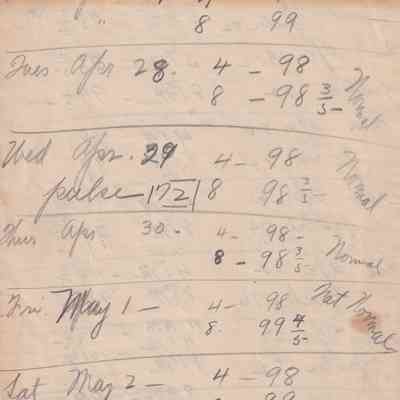 " 8 99
Tues Apr 28. 4 - 98
8 - 98 3/5 - Normal
Wed Apr. 29 4 - 98 Normal
pulse 72 8 98 3/5 -
Thurs Apr 30 - 4 - 98 -
8 - 98 3/5 Normal
Fri May 1 - 4 - 98 Not Normal
8. 99 4/5 -
Sat May 2 - 4 - 98
99